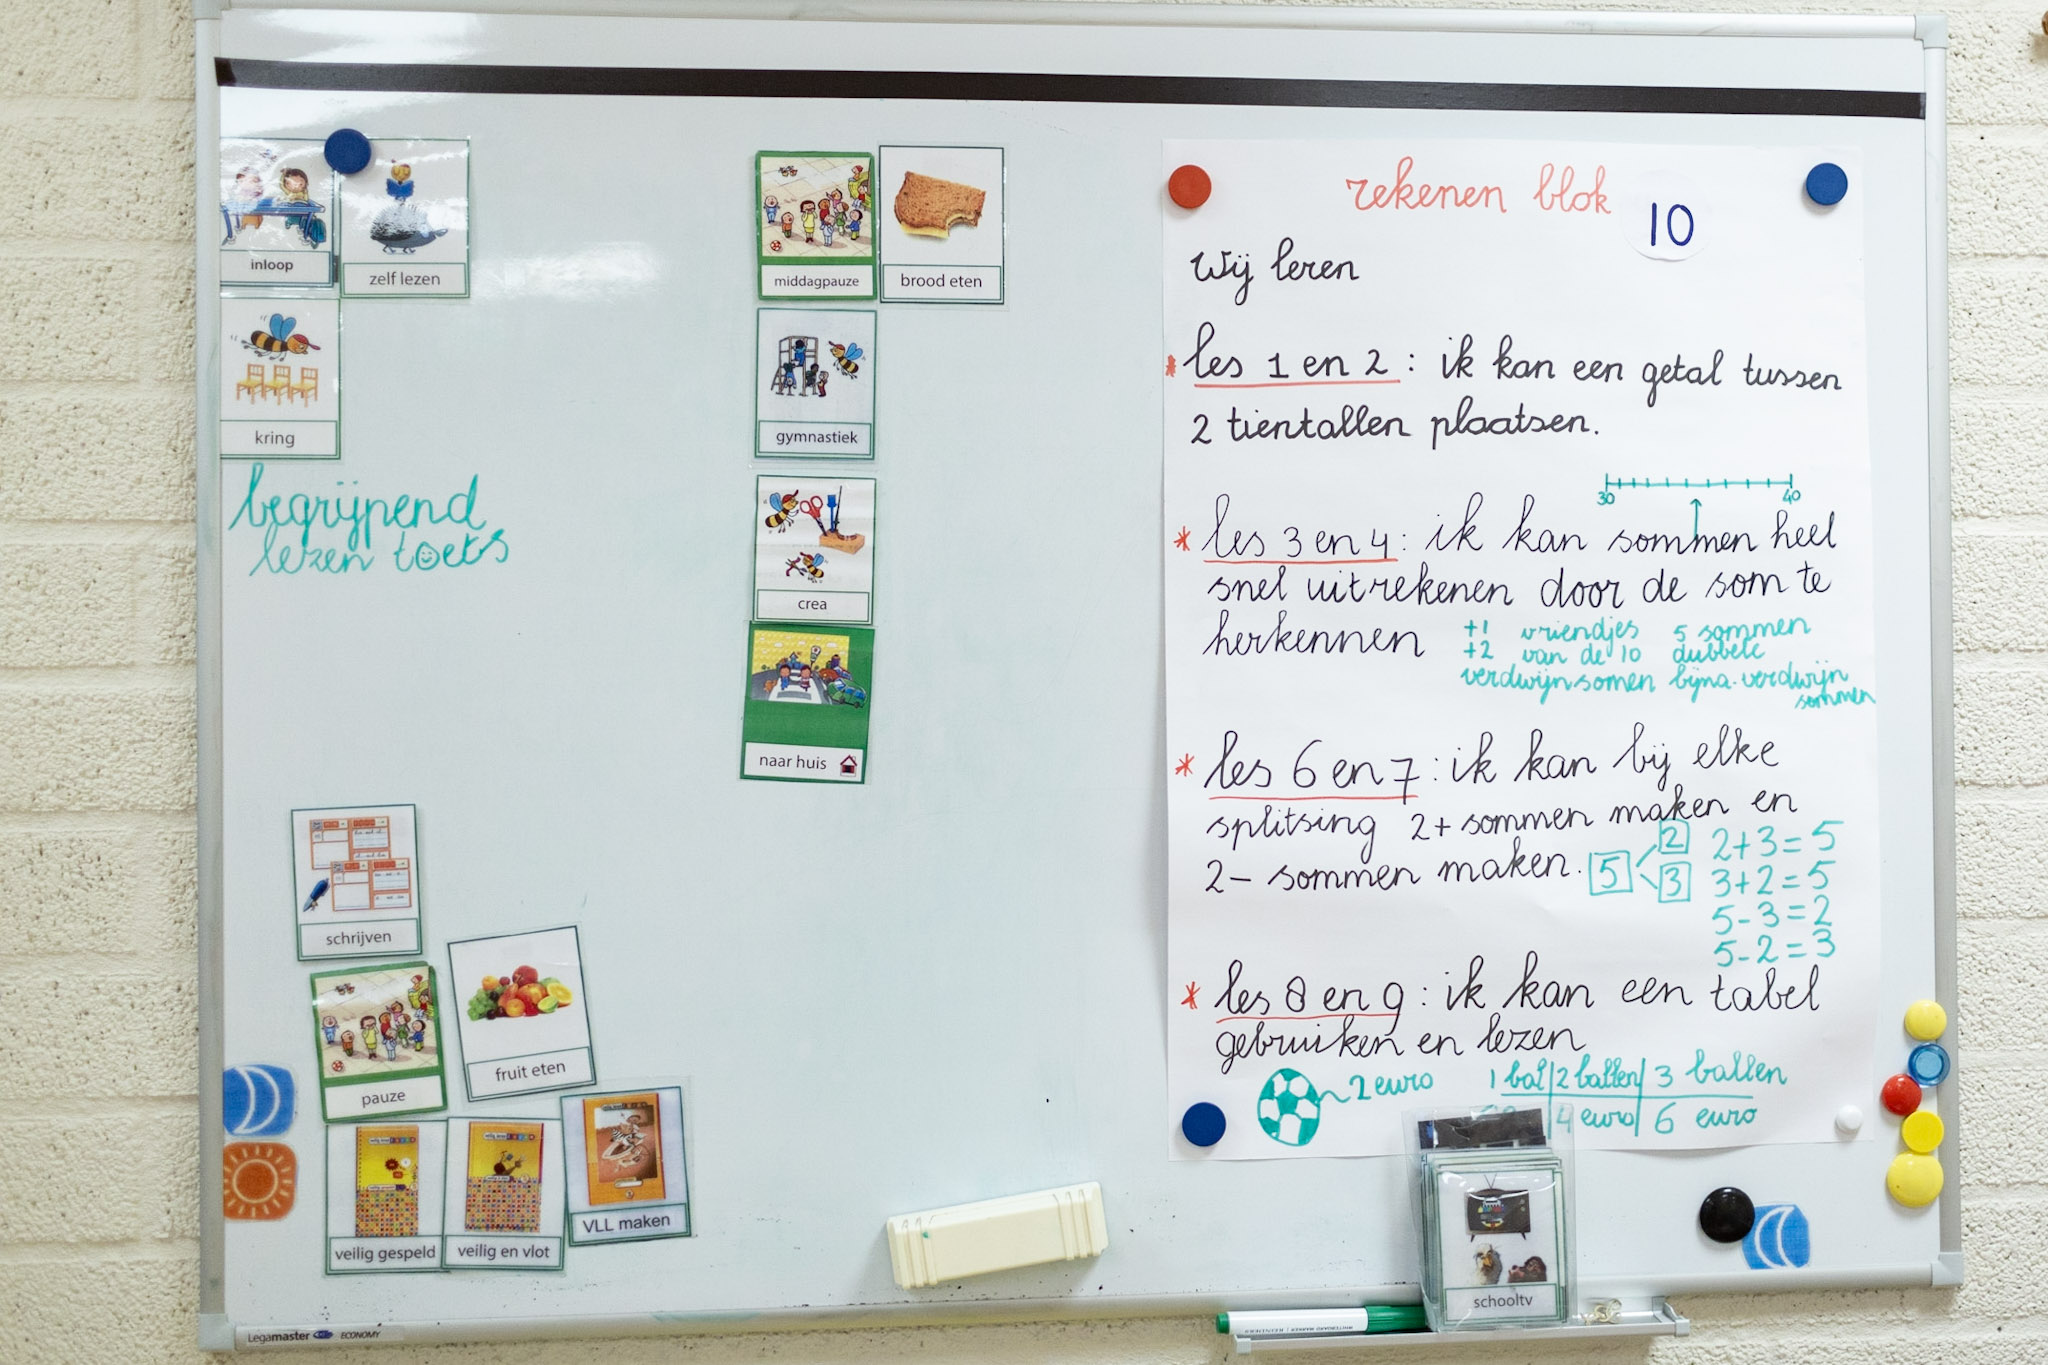 inloop
zelf lezen
kring
begrijpend
lezen toets
schrijven
pauze
fruit eten
veilig gespeld
veilig en vlot
VLL maken
middagpauze
brood eten
gymnastiek
crea
naar huis
rekenen blok 10
Wij leren
* les 1 en 2 : ik kan een getal tussen
2 tientallen plaatsen.
30 40
* les 3 en 4 : ik kan sommen heel
snel uitrekenen door de som te
herkennen
+1 vriendjes 5 sommen
+2 van de 10 dubbele
verdwijnsomen bijna-verdwijn
sommen
* les 6 en 7 : ik kan bij elke
splitsing 2+ sommen maken en
2- sommen maken.
5 2 3
2+3=5
3+2=5
5-3=2
5-2=3
* les 8 en 9 : ik kan een tabel
gebruiken en lezen
2 euro
1 bal 2 ballen 3 ballen
4 euro 6 euro
schooltv
Legamaster ECONOMY